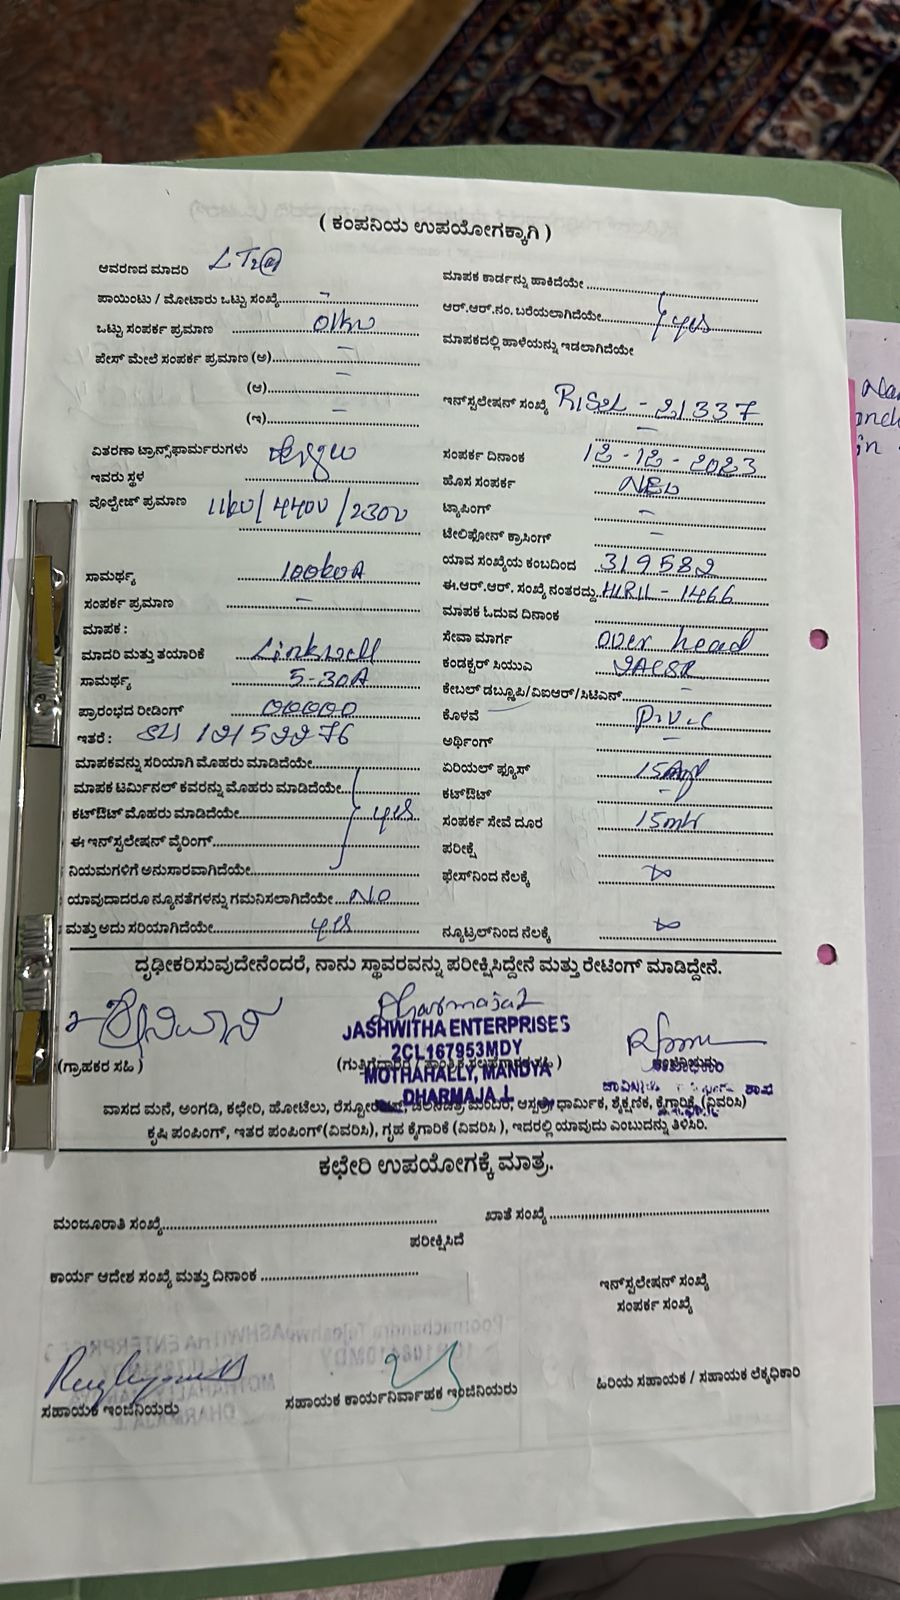 ( ಕಂಪನಿಯ ಉಪಯೋಗಕ್ಕಾಗಿ )
ಆವರಣದ ಮಾದರಿ LT2(a)
ಪಾಯಿಂಟು / ಮೋಟಾರು ಒಟ್ಟು ಸಂಖ್ಯೆ –
ಒಟ್ಟು ಸಂಪರ್ಕ ಪ್ರಮಾಣ 01kw
ಪೇಸ್ ಮೇಲೆ ಸಂಪರ್ಕ ಪ್ರಮಾಣ (ಅ) –
(ಆ) –
(ಇ) –
ವಿತರಣಾ ಟ್ರಾನ್ಸ್‌ಫಾರ್ಮರುಗಳು
ಇವರು ಸ್ಥಳ
ವೊಲ್ಟೇಜ್ ಪ್ರಮಾಣ 11kv/440v/230v
ಸಾಮರ್ಥ್ಯ 100kVA
ಸಂಪರ್ಕ ಪ್ರಮಾಣ –
ಮಾಪಕ :
ಮಾದರಿ ಮತ್ತು ತಯಾರಿಕೆ Linkwell
ಸಾಮರ್ಥ್ಯ 5-30A
ಪ್ರಾರಂಭದ ರೀಡಿಂಗ್ 00000
ಇತರೆ :
ಮಾಪಕವನ್ನು ಸರಿಯಾಗಿ ಮೊಹರು ಮಾಡಿದೆಯೇ
ಮಾಪಕ ಟರ್ಮಿನಲ್ ಕವರನ್ನು ಮೊಹರು ಮಾಡಿದೆಯೇ
ಕಟ್‌ಔಟ್ ಮೊಹರು ಮಾಡಿದೆಯೇ yes
ಈ ಇನ್‌ಸ್ಟಲೇಷನ್ ವೈರಿಂಗ್
ನಿಯಮಗಳಿಗೆ ಅನುಸಾರವಾಗಿದೆಯೇ
ಯಾವುದಾದರೂ ನ್ಯೂನತೆಗಳನ್ನು ಗಮನಿಸಲಾಗಿದೆಯೇ NO
ಮತ್ತು ಅದು ಸರಿಯಾಗಿದೆಯೇ yes
ಮಾಪಕ ಕಾರ್ಡನ್ನು ಹಾಕಿದೆಯೇ
ಆರ್.ಆರ್.ನಂ. ಬರೆಯಲಾಗಿದೆಯೇ yes
ಮಾಪಕದಲ್ಲಿ ಹಾಳೆಯನ್ನು ಇಡಲಾಗಿದೆಯೇ
ಇನ್‌ಸ್ಟಲೇಷನ್ ಸಂಖ್ಯೆ 21337
ಸಂಪರ್ಕ ದಿನಾಂಕ 12-12-2023
ಹೊಸ ಸಂಪರ್ಕ NEW
ಟ್ಯಾಪಿಂಗ್ –
ಟೆಲಿಫೋನ್ ಕ್ರಾಸಿಂಗ್ –
ಯಾವ ಸಂಖ್ಯೆಯ ಕಂಬದಿಂದ 319582
ಈ.ಆರ್.ಆರ್. ಸಂಖ್ಯೆ ನಂತರದ್ದು - 1466
ಮಾಪಕ ಓದುವ ದಿನಾಂಕ
ಸೇವಾ ಮಾರ್ಗ over head
ಕಂಡಕ್ಟರ್ ಸಿಯುಎ
ಕೇಬಲ್ ಡಬ್ಲೂಪಿ/ವಿಐಆರ್/ಸಿಟಿಎಸ್ –
ಕೊಳವೆ P.V.C
ಅರ್ಥಿಂಗ್ –
ಏರಿಯಲ್ ಫ್ಯೂಸ್ 15Amp
ಕಟ್‌ಔಟ್ –
ಸಂಪರ್ಕ ಸೇವೆ ದೂರ 15mtr
ಪರೀಕ್ಷೆ
ಫೇಸ್‌ನಿಂದ ನೆಲಕ್ಕೆ ∞
ನ್ಯೂಟ್ರಲ್‌ನಿಂದ ನೆಲಕ್ಕೆ ∞
ದೃಢೀಕರಿಸುವುದೇನೆಂದರೆ, ನಾನು ಸ್ಥಾವರವನ್ನು ಪರೀಕ್ಷಿಸಿದ್ದೇನೆ ಮತ್ತು ರೇಟಿಂಗ್ ಮಾಡಿದ್ದೇನೆ.
JASHWITHA ENTERPRISES
2CL167953MDY
MOTHAHALLY, MANDYA
DHARMAJA.L
(ಗ್ರಾಹಕರ ಸಹಿ )
ವಾಸದ ಮನೆ, ಅಂಗಡಿ, ಕಛೇರಿ, ಹೋಟೆಲು, ಧಾರ್ಮಿಕ, ಶೈಕ್ಷಣಿಕ, ಕೈಗಾರಿಕೆ (ವಿವರಿಸಿ)
ಕೃಷಿ ಪಂಪಿಂಗ್, ಇತರ ಪಂಪಿಂಗ್(ವಿವರಿಸಿ), ಗೃಹ ಕೈಗಾರಿಕೆ (ವಿವರಿಸಿ ), ಇದರಲ್ಲಿ ಯಾವುದು ಎಂಬುದನ್ನು ತಿಳಿಸಿರಿ.
ಕಛೇರಿ ಉಪಯೋಗಕ್ಕೆ ಮಾತ್ರ.
ಮಂಜೂರಾತಿ ಸಂಖ್ಯೆ
ಖಾತೆ ಸಂಖ್ಯೆ
ಪರೀಕ್ಷಿಸಿದೆ
ಕಾರ್ಯ ಆದೇಶ ಸಂಖ್ಯೆ ಮತ್ತು ದಿನಾಂಕ
ಇನ್‌ಸ್ಟಲೇಷನ್ ಸಂಖ್ಯೆ
ಸಂಪರ್ಕ ಸಂಖ್ಯೆ
ಸಹಾಯಕ ಇಂಜಿನಿಯರು
ಸಹಾಯಕ ಕಾರ್ಯನಿರ್ವಾಹಕ ಇಂಜಿನಿಯರು
ಹಿರಿಯ ಸಹಾಯಕ / ಸಹಾಯಕ ಲೆಕ್ಕಧಿಕಾರಿ